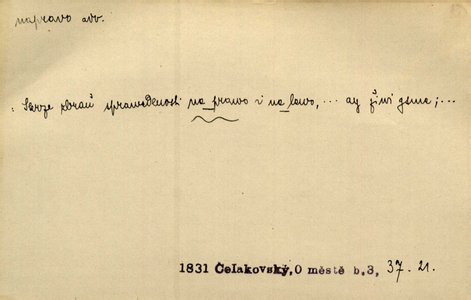 napravo adv.
: Skrze zbraň sprawedlnosti na prawo i na lewo, ... ay žiwi gsme; ...
1831 Čelakovský, O městě b.3, 37. 21.